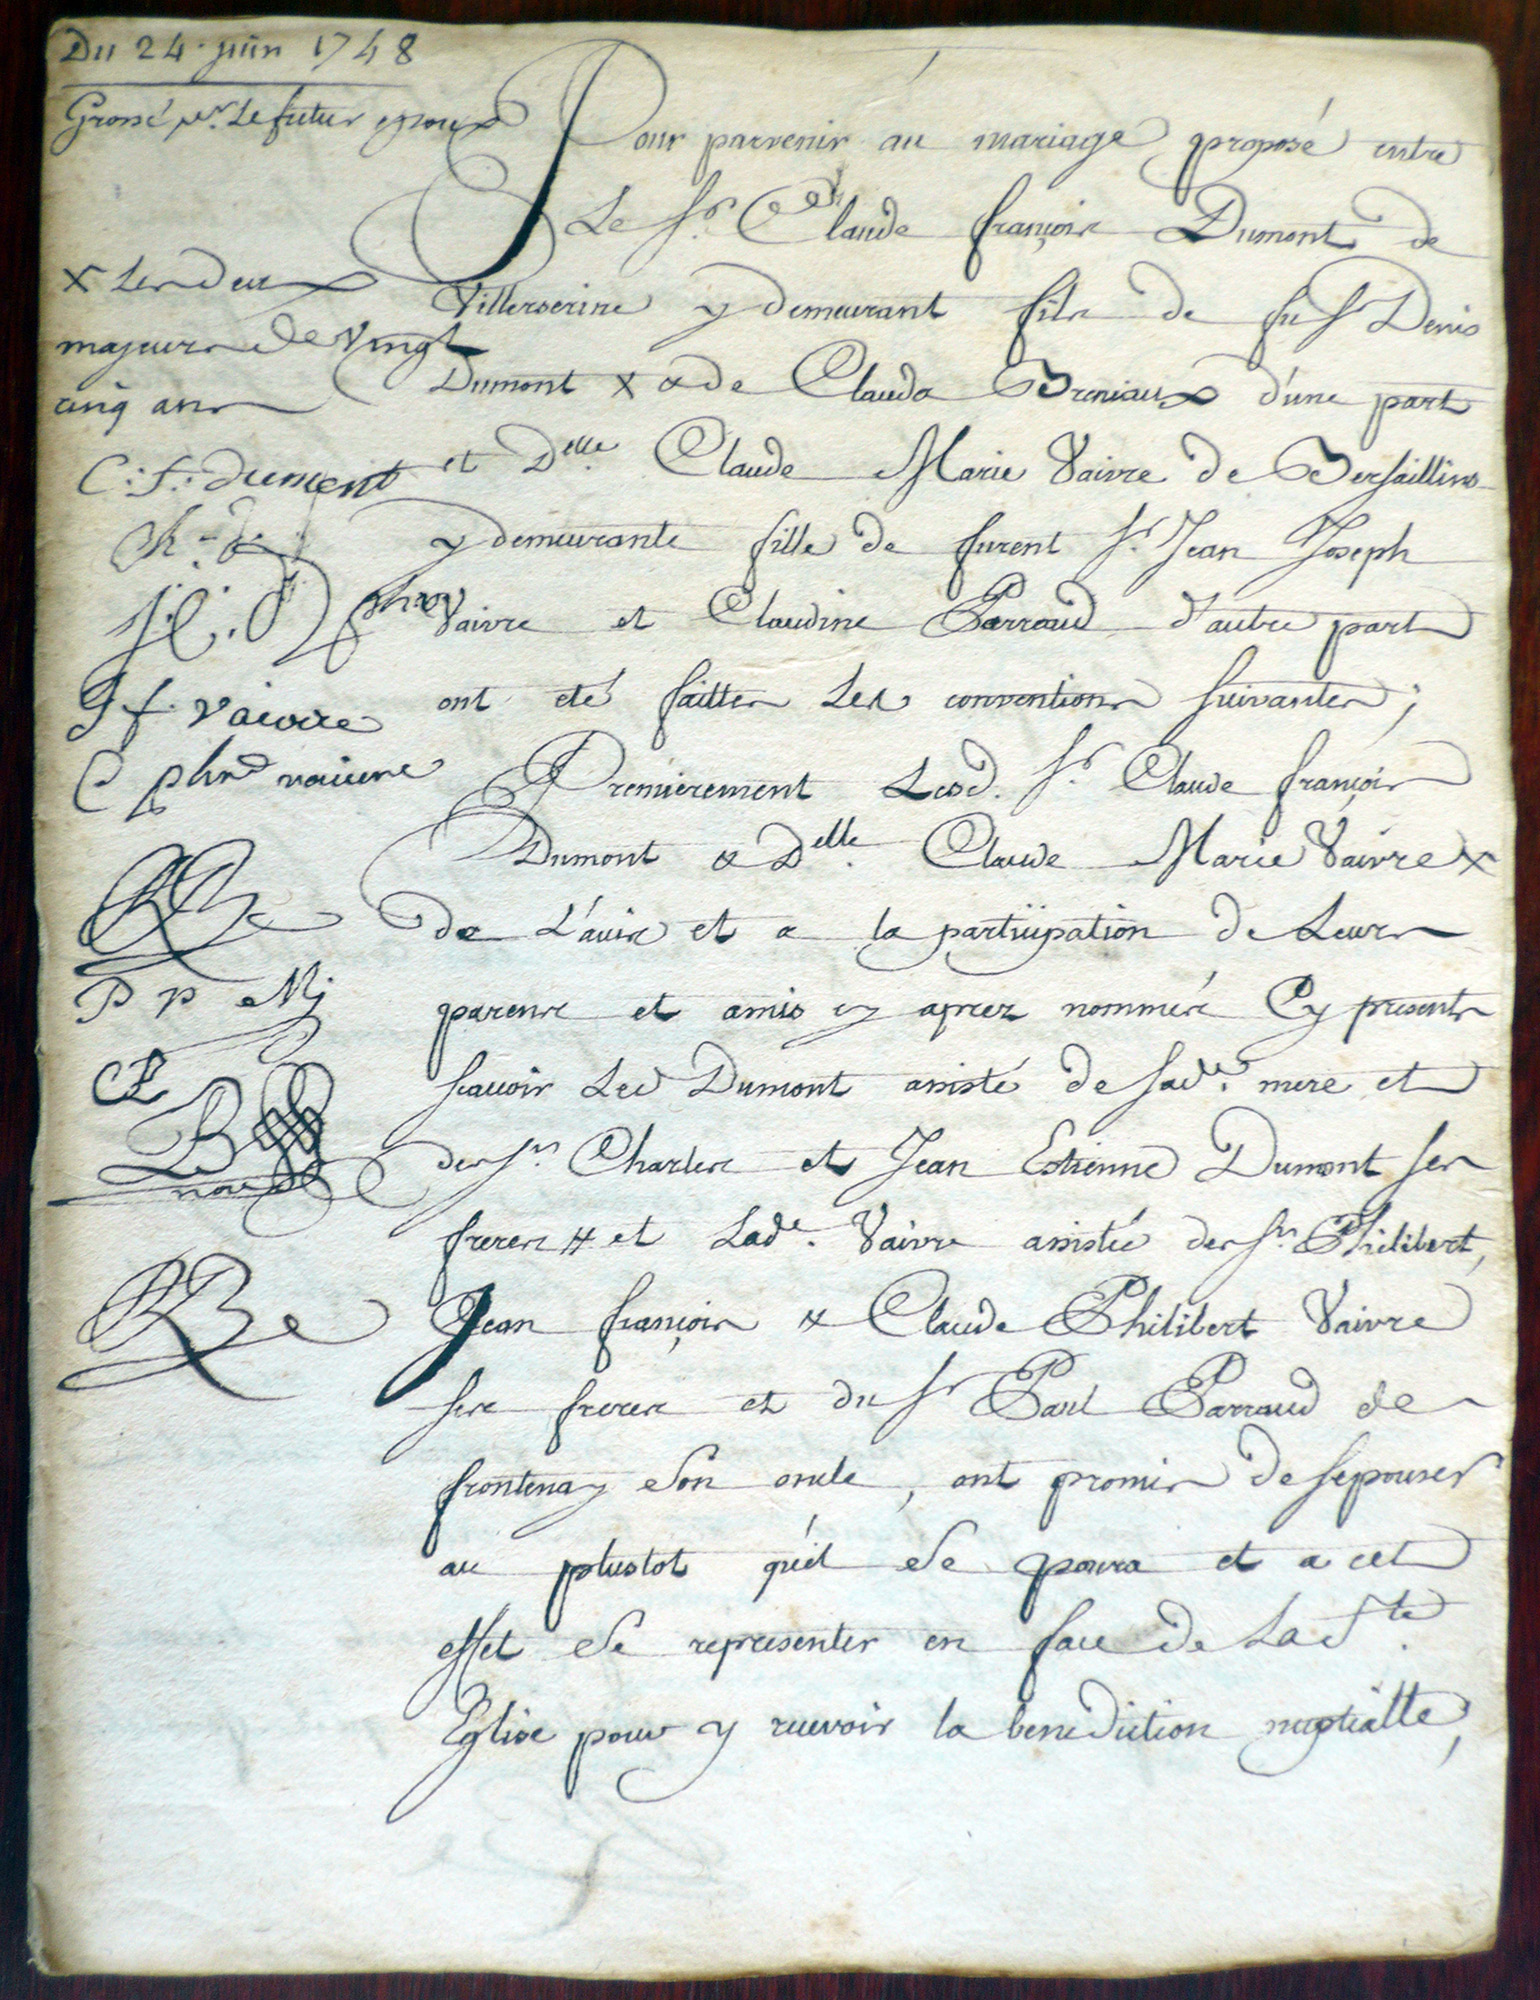 Du 24 juin 1748
Grossé pr. Le futur epoux
Pour parvenir au mariage proposé entre
Le Sr. Claude françois Dumont de
Villerserine y demeurant fils de fu Sr Denis
Dumont x & de Clauda Breniaux d'une part
et Delle. Claude Marie Vaivre de Bersaillins
y demeurante fille de furent Sr. Jean Joseph
Vaivre et Claudine Parraud d'autre part
ont eté faittes Les conventions suivantes;
Premierement Lesd. Sr. Claude françois
Dumont & Delle. Claude Marie Vaivre x
de L'avis et a la partiipation de Leurs
parens et amis cy aprez nommés Cy presents
scauoir Led Dumont assisté de sade. mere et
des Srs Charles et Jean Estienne Dumont ses
freres # et Lade. Vaivre assistée des Srs Philibert,
Jean françois & Claude Philibert Vaivre
ses freres et du Sr Paul Parraud de
frontenay son oncle, ont promis de sepouser
au plustot qu'il se poura et a cet
effet se representer en face de La Ste.
Eglise pour y recevoir la benediction nuptialle,
x Les deux
majeurs de Vingt
cinq ans
C. f. dumont
J f. vaivre
C phrd vaivre
P P